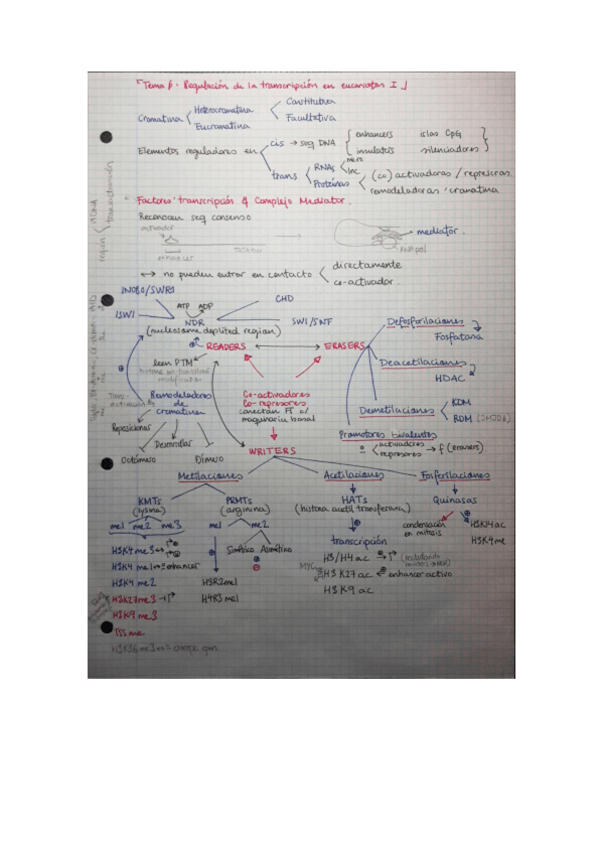 "Tema 8: Regulación de la transcripción en eucariotas I"
Cromatina
Heterocromatina
Constitutiva
Facultativa
Eucromatina
Elementos reguladores en
cis → seq DNA
enhancers
islas CpG
insulators
silenciadores
trans
RNAs
Proteínas
(co) activadoras / represoras
remodeladoras cromatina
Factores transcripción & Complejo Mediator.
Reconocen seq consenso
activador
enhancer
mediator.
RNA pol
↔ no pueden entrar en contacto
directamente
co-activador.
INO80/SWR1
ISWI
ATP ADP
CHD
NDR
SWI/SNF
(nucleosome depleted region)
READERS
ERASERS
leen PTM
Defosforilaciones
Fosfatasa
Deacetilaciones
HDAC
Demetilaciones
KDM
RDM
Remodeladores
de
cromatina
Reposicionar
Desenrollar
Octámero
Dímero
Co-activadores
Co-represores
conectan FT c/
maquinaria basal
Promotores bivalentes
activadores
represores
→ f (erasers)
WRITERS
Metilaciones
Acetilaciones
Fosforilaciones
KMTs
(lysina)
PRMTs
(arginina)
HATs
(histona acetil transferasa)
Quinasas
me1 me2 me3
me1 me2
Simético Asimético
transcripción
condensación
en mitosis
H3K14ac
H3K4me
H3K4me3
H3K4me1 ↔ enhancer
H3K4me2
H3K27me3
H3K9me3
H3K36me3
H3R2me1
H4R3me1
H3/H4 ac
MYC
H3K27 ac
enhancer activo
H3K9 ac